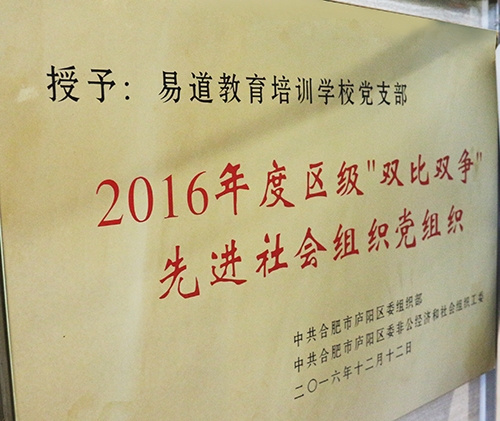 授予：易道教育培训学校党支部
2016年度区级"双比双争"
先进社会组织党组织
中共合肥市庐阳区委组织部
中共合肥市庐阳区委非公经济和社会组织工委
二〇一六年十二月十二日